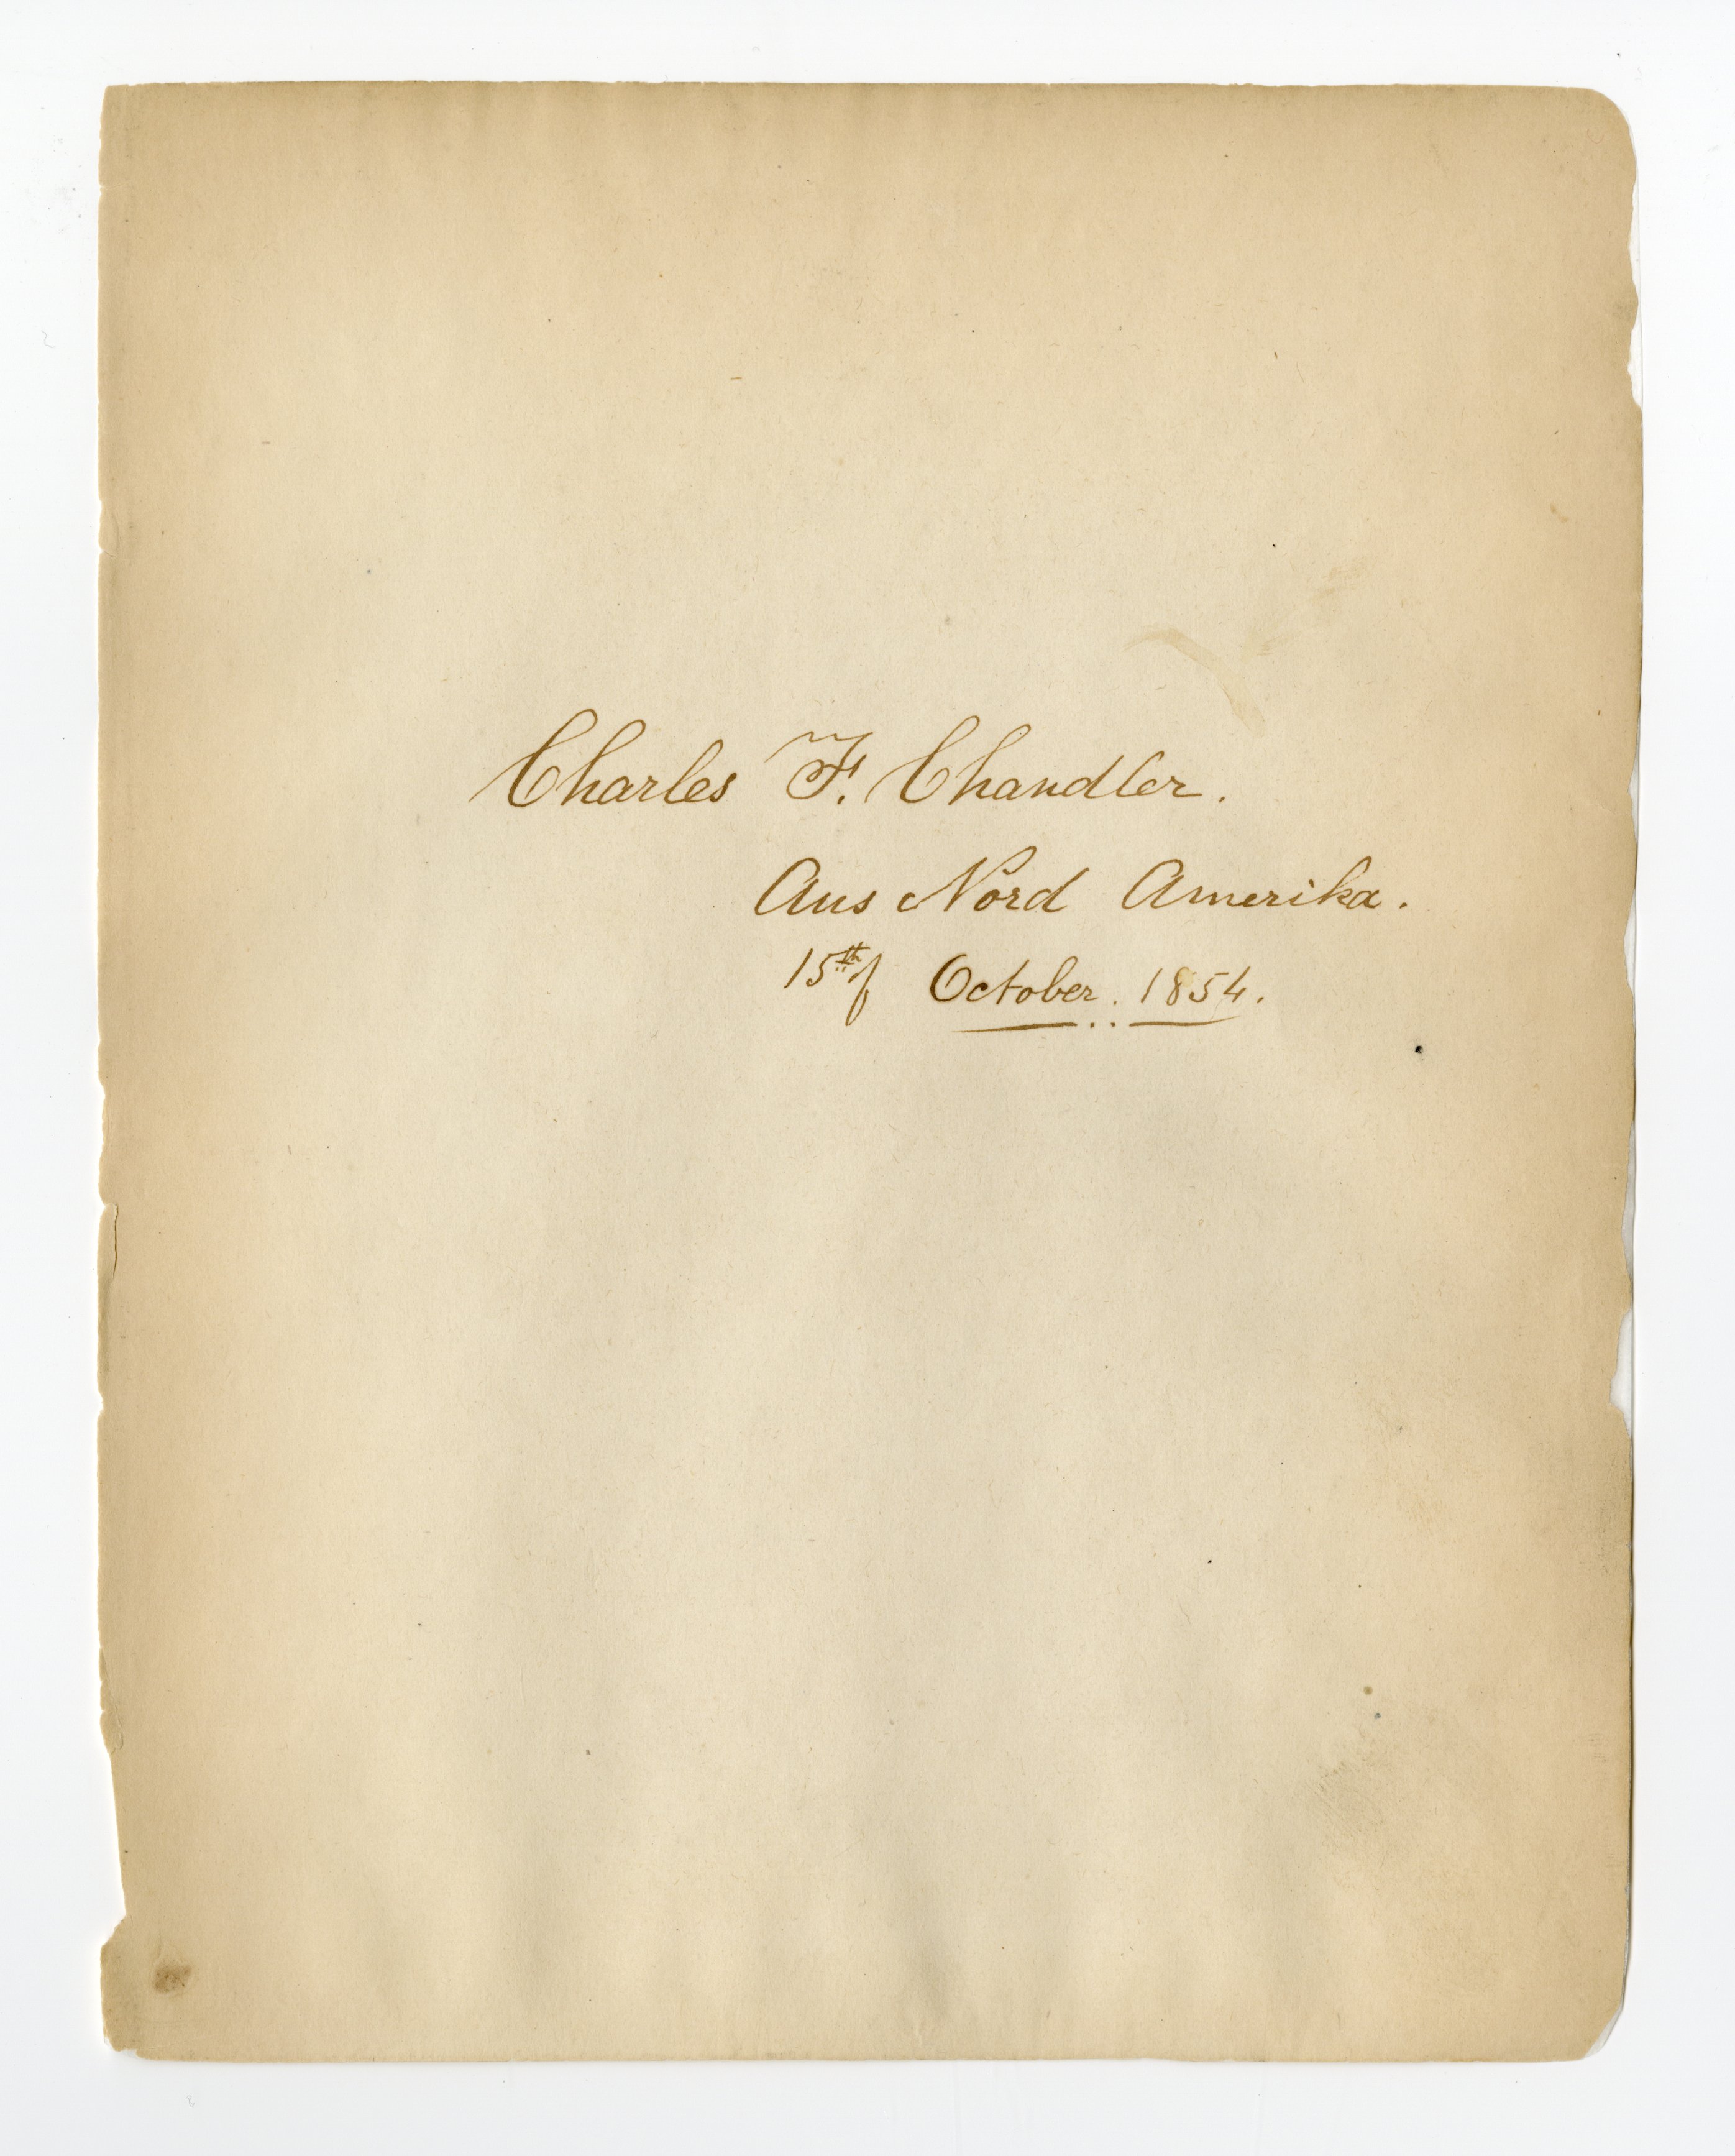 Charles F. Chandler.
Aus Nord Amerika.
15th of October. 1854.